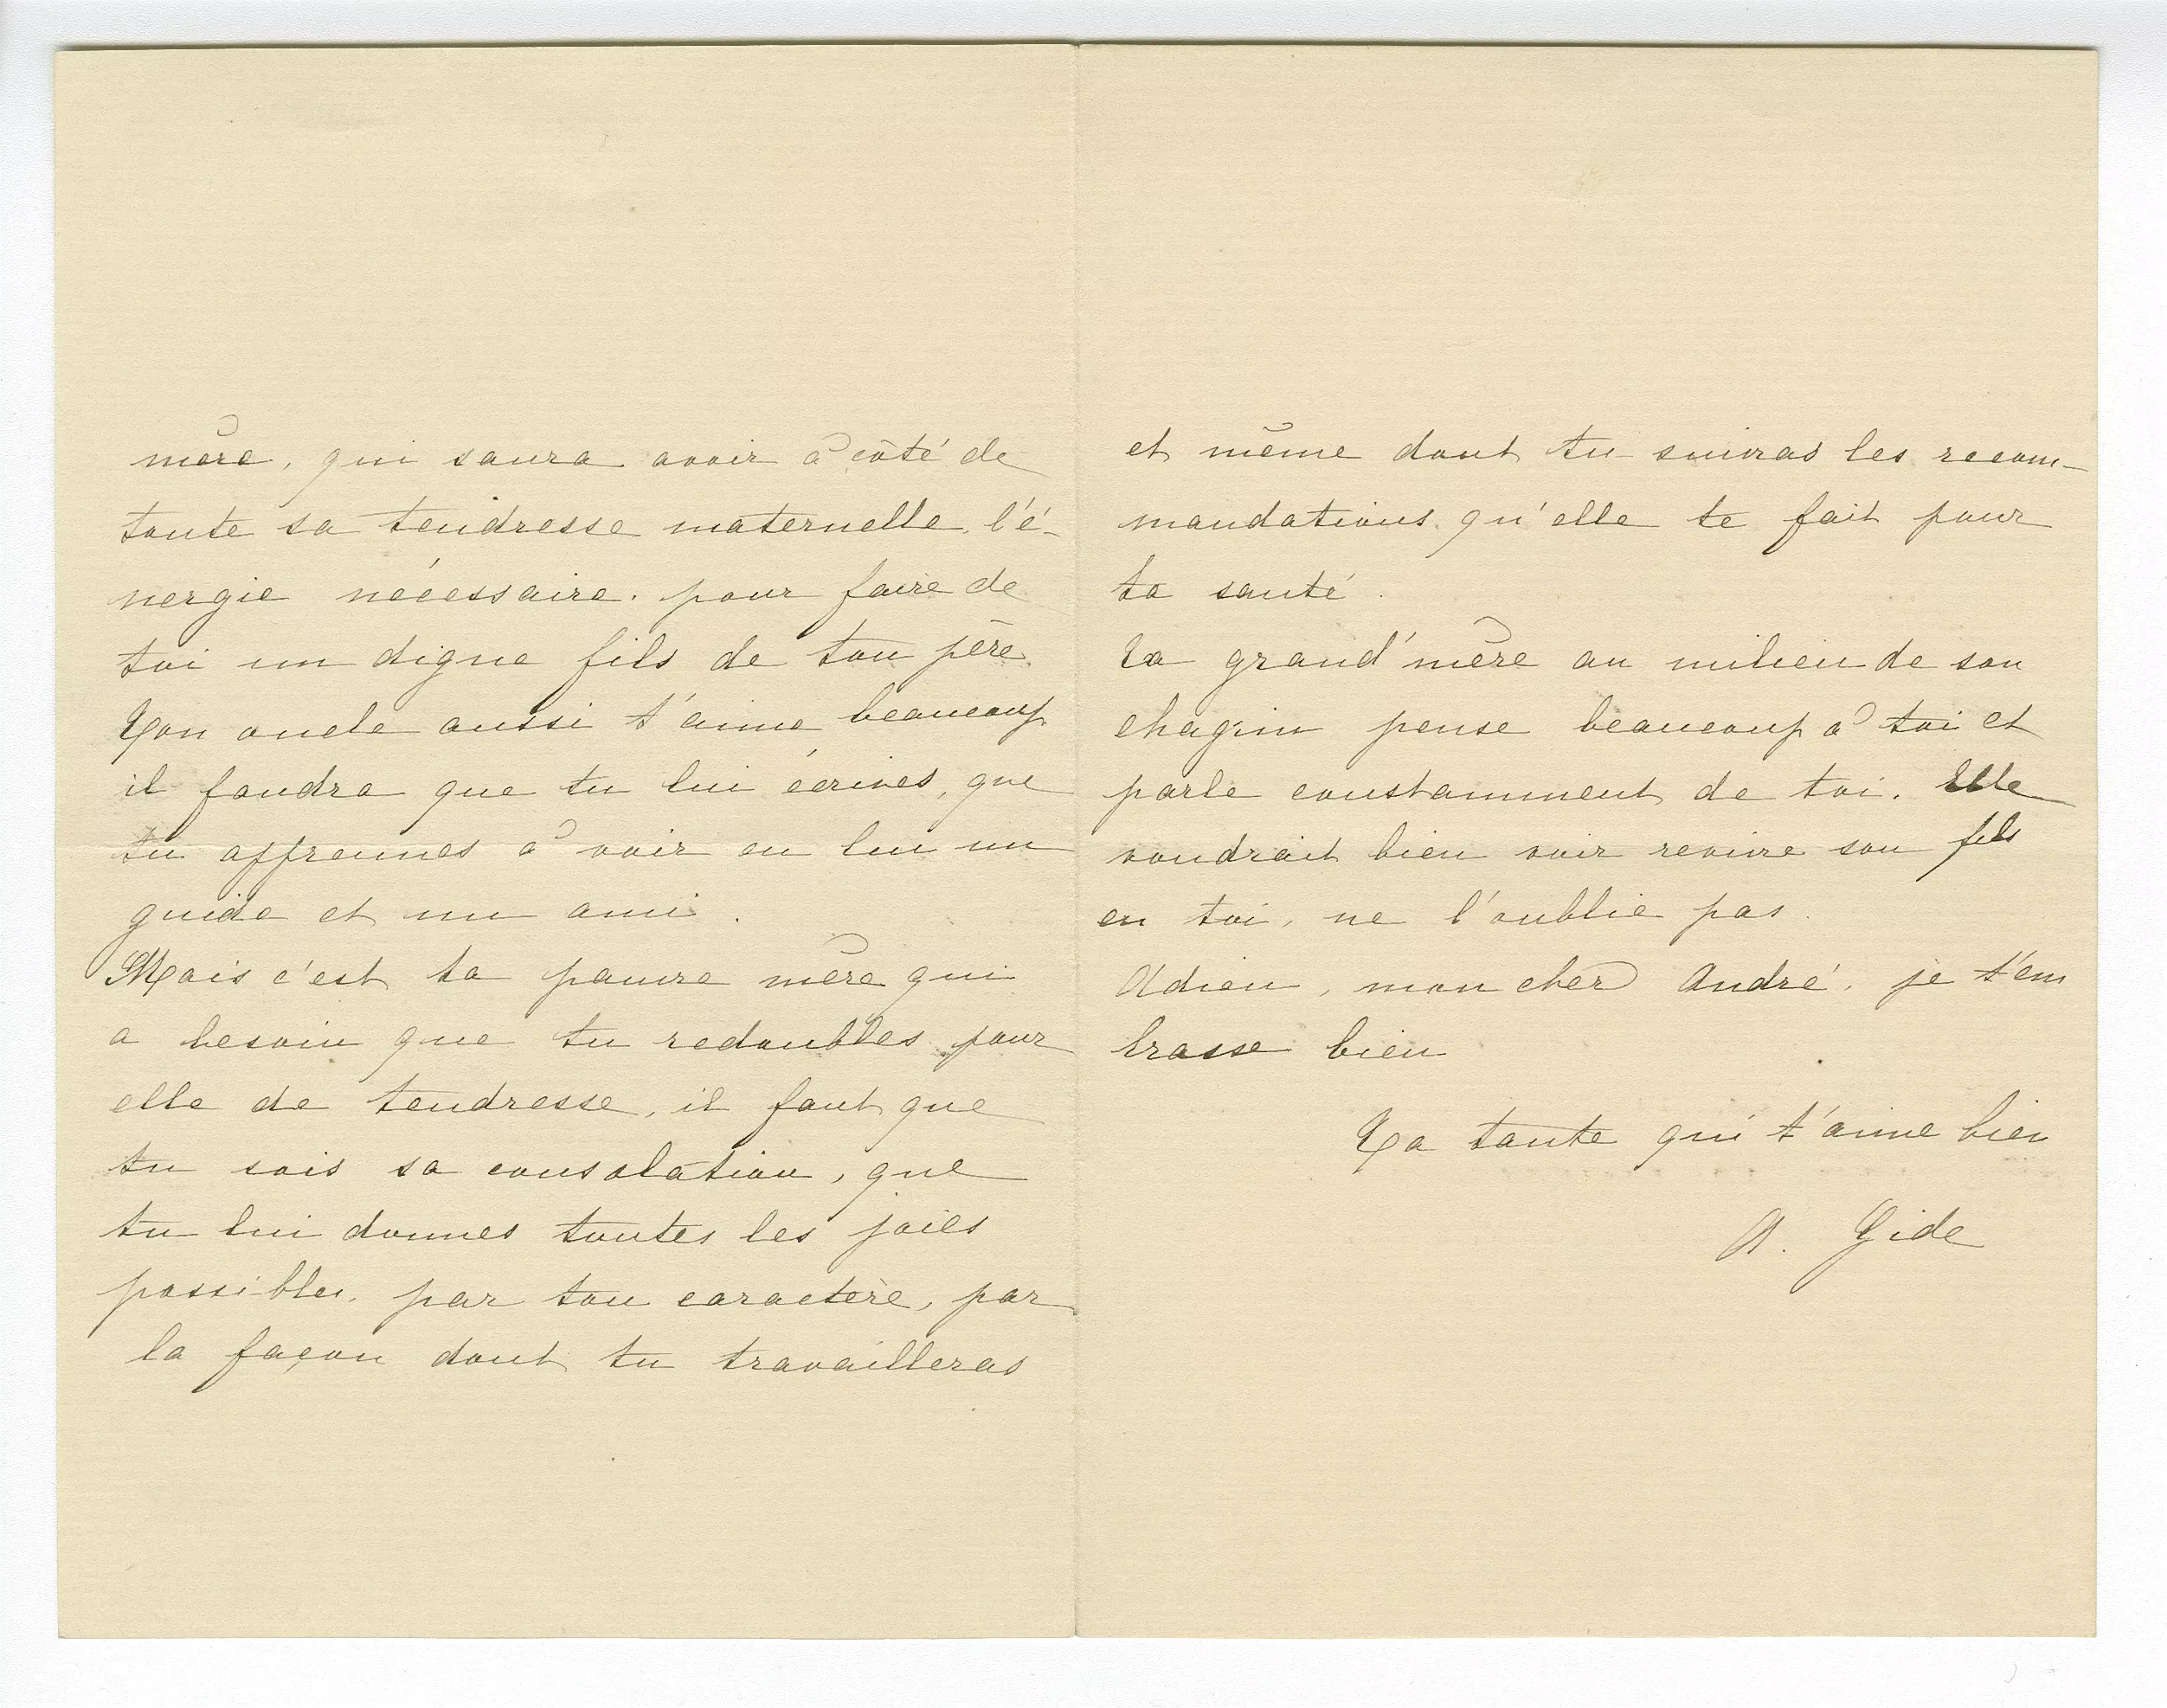 mère, qui saura avoir à côté de
toute sa tendresse maternelle, l'é-
nergie nécessaire. pour faire de
toi un digne fils de ton père.
Ton oncle aussi t'aime beaucoup
il faudra que tu lui écrives, que
tu apprennes à voir en lui un
guide et un ami.
Mais c'est ta pauvre mère qui
a besoin que tu redoubles pour
elle de tendresse, il faut que
tu sois sa consolation, que
tu lui donnes toutes les joies
possibles, par ton caractère, par
la façon dont tu travailleras
et même dont tu suivras les recom-
mandations qu'elle te fait pour
ta santé.
Ta grand'mère au milieu de son
chagrin pense beaucoup à toi et
parle constamment de toi. Elle
voudrait bien voir revivre son fils
en toi, ne l'oublie pas.
Adieu, mon cher André, je t'em
brasse bien
Ta tante qui t'aime bien
A. Gide